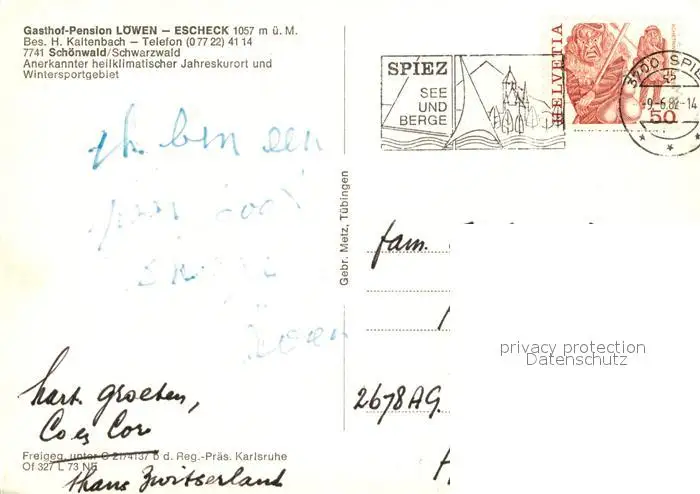 Gasthof-Pension LÖWEN — ESCHECK 1057 m ü. M.
Bes. H. Kaltenbach — Telefon (0 77 22) 41 14
7741 Schönwald/Schwarzwald
Anerkannter heilklimatischer Jahreskurort und
Wintersportgebiet
SPIEZ
SEE
UND
BERGE
HELVETIA
50
3700 SPIEZ
-9-6.82-14
ik ben een
Gebr. Metz, Tübingen
fam.
privacy protection
Datenschutz
2678AG.
hart. groeten,
Co en Cor
Freigeg. unter C 21/4137 b d. Reg.-Präs. Karlsruhe
Of 327 L 73 NE
thans Zwitserland